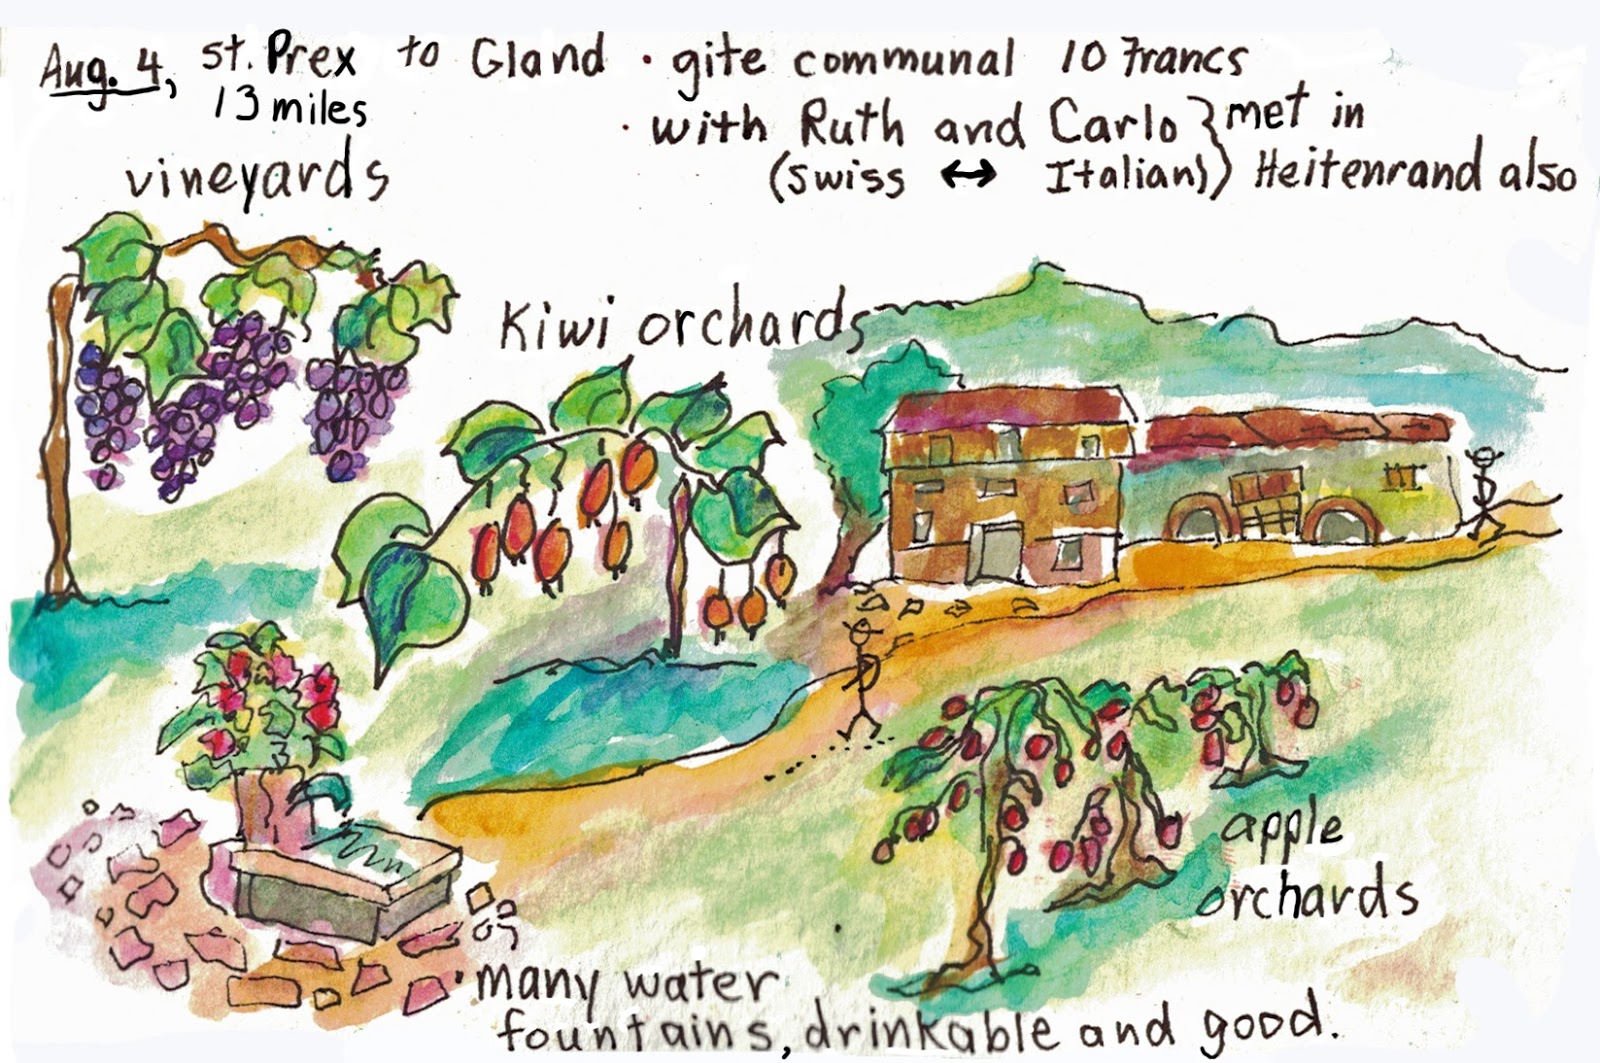 Aug. 4, St. Prex to Gland · gite communal 10 Francs
13 miles
· with Ruth and Carlo } met in
(Swiss ↔ Italian) Heitenrand also
vineyards
Kiwi orchards
apple
orchards
· many water
fountains, drinkable and good.